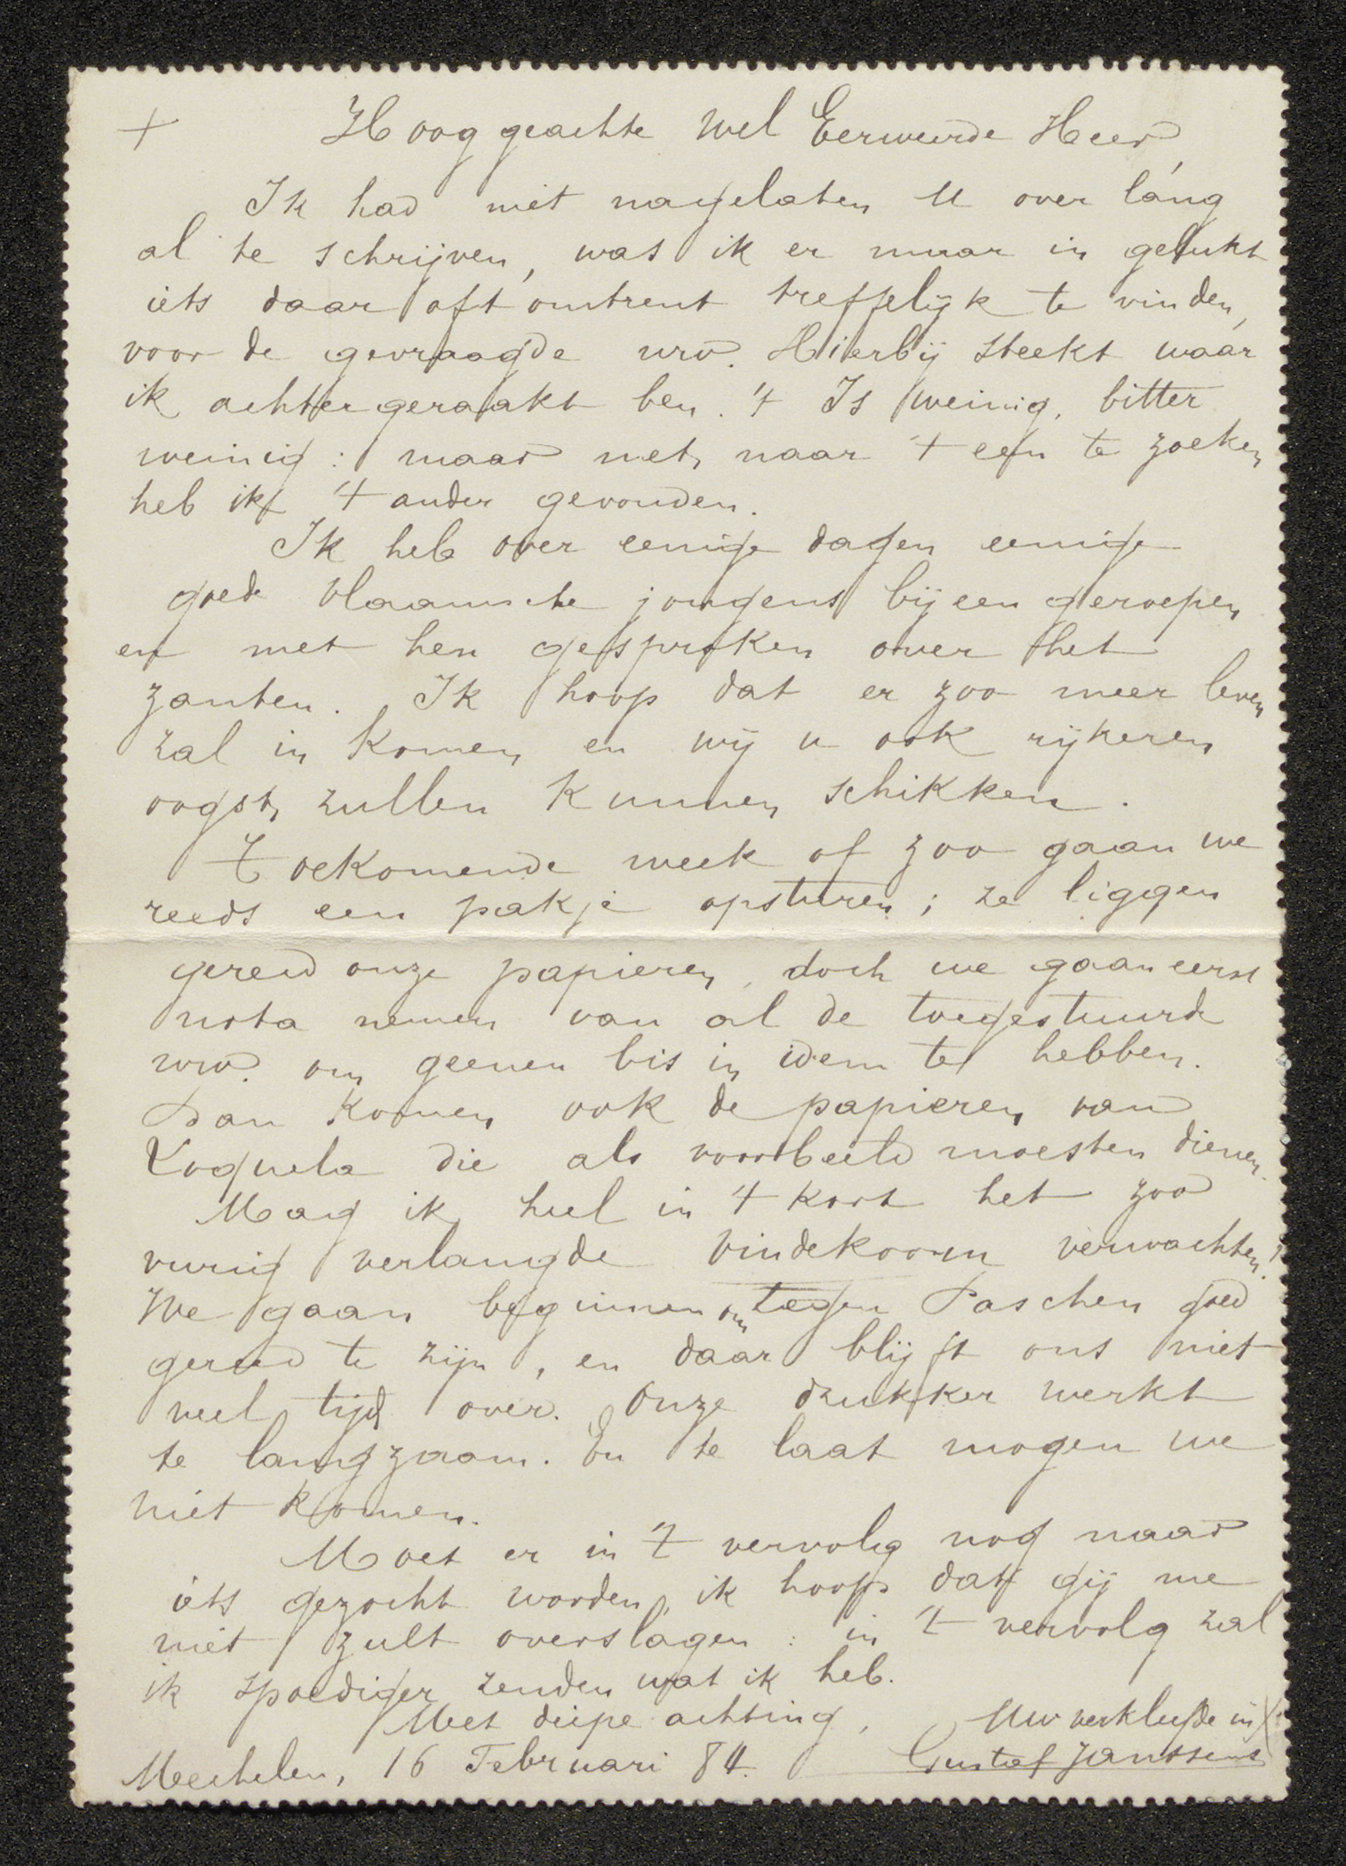 + Hooggeachte Wel Eerweerde Heer,
Ik had niet nagelaten U over láng
al te schrijven, was ik er maar in gelukt
iets daar oft omtrent treffelijk te vinden,
voor de gevraagde wrd. Hierbij steekt waar
ik achter geraakt ben. 't Is weinig, bitter
weinig: maar met naar 't een te zoeken
heb ik 't ander gevonden.
Ik heb over eenige dagen eenige
goede vlaamsche jongens bijeen geroepen
en met hen gesproken over het
zanten. Ik hoop dat er zoo meer leven
zal in komen en wij u ook rijkeren
oogst zullen kunnen schikken.
Toekomende week of zoo gaan we
reeds een pakje opsturen; ze liggen
gereed onze papieren, doch we gaan eerst
nota nemen van al de toegestuurde
wrd. om geenen bis in idem te hebben.
Dan komen ook de papieren van
Loquela die als voorbeeld moesten dienen.
Mag ik heel in 't kort het zoo
vurig verlangde vindekoorn verwachten!
We gaan beginnen om tegen Paschen goed
gereed te zijn, en daar blijft ons niet
veel tijd over. Onze drukker werkt
te langzaam. En te laat mogen we
niet komen.
Moet er in 't vervolg nog naar
iets gezocht worden, ik hoop dat gij me
niet zult overslagen: in 't vervolg zal
ik spoediger zenden wat ik heb.
Met diepe achting, Uw verkleefde in X
Mechelen, 16 Februari 84. Gustaf Janssens